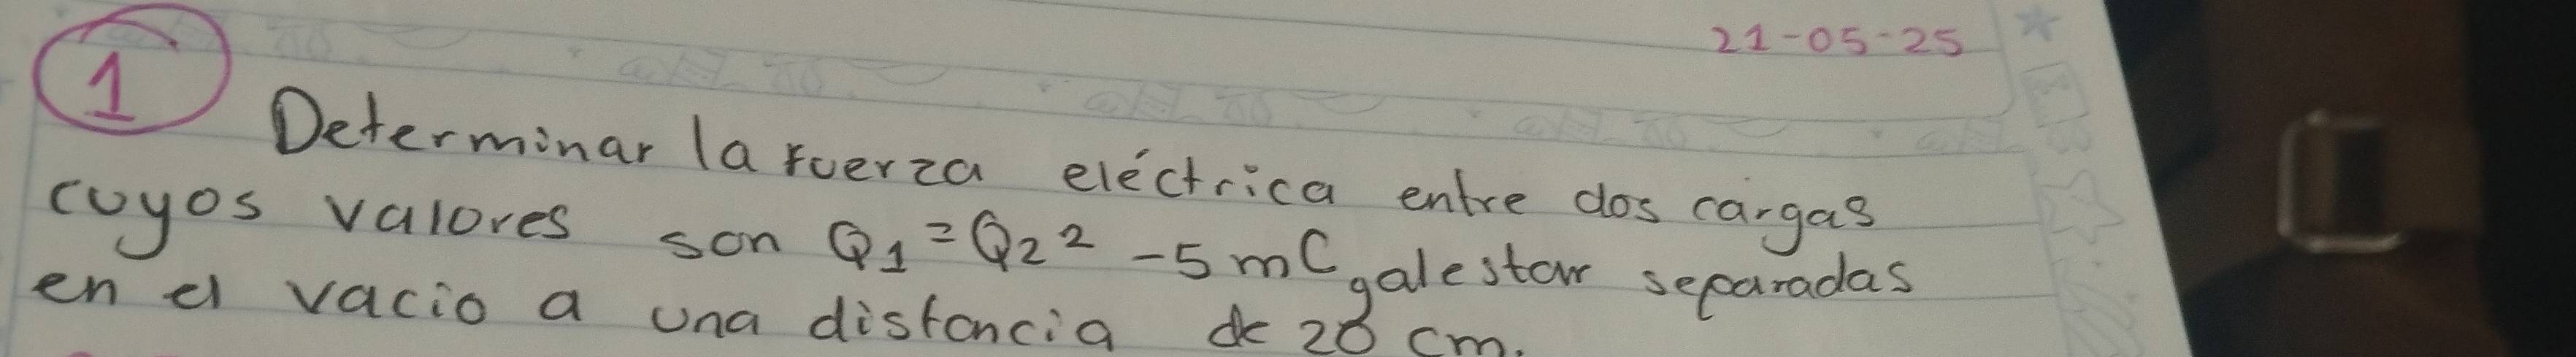 21-05-25
1 Determinar la fuerza eléctrica entre dos cargas
cuyos valores son Q1=Q2² -5mC, al estar separadas
en el vacio a una distancia de 20 cm.